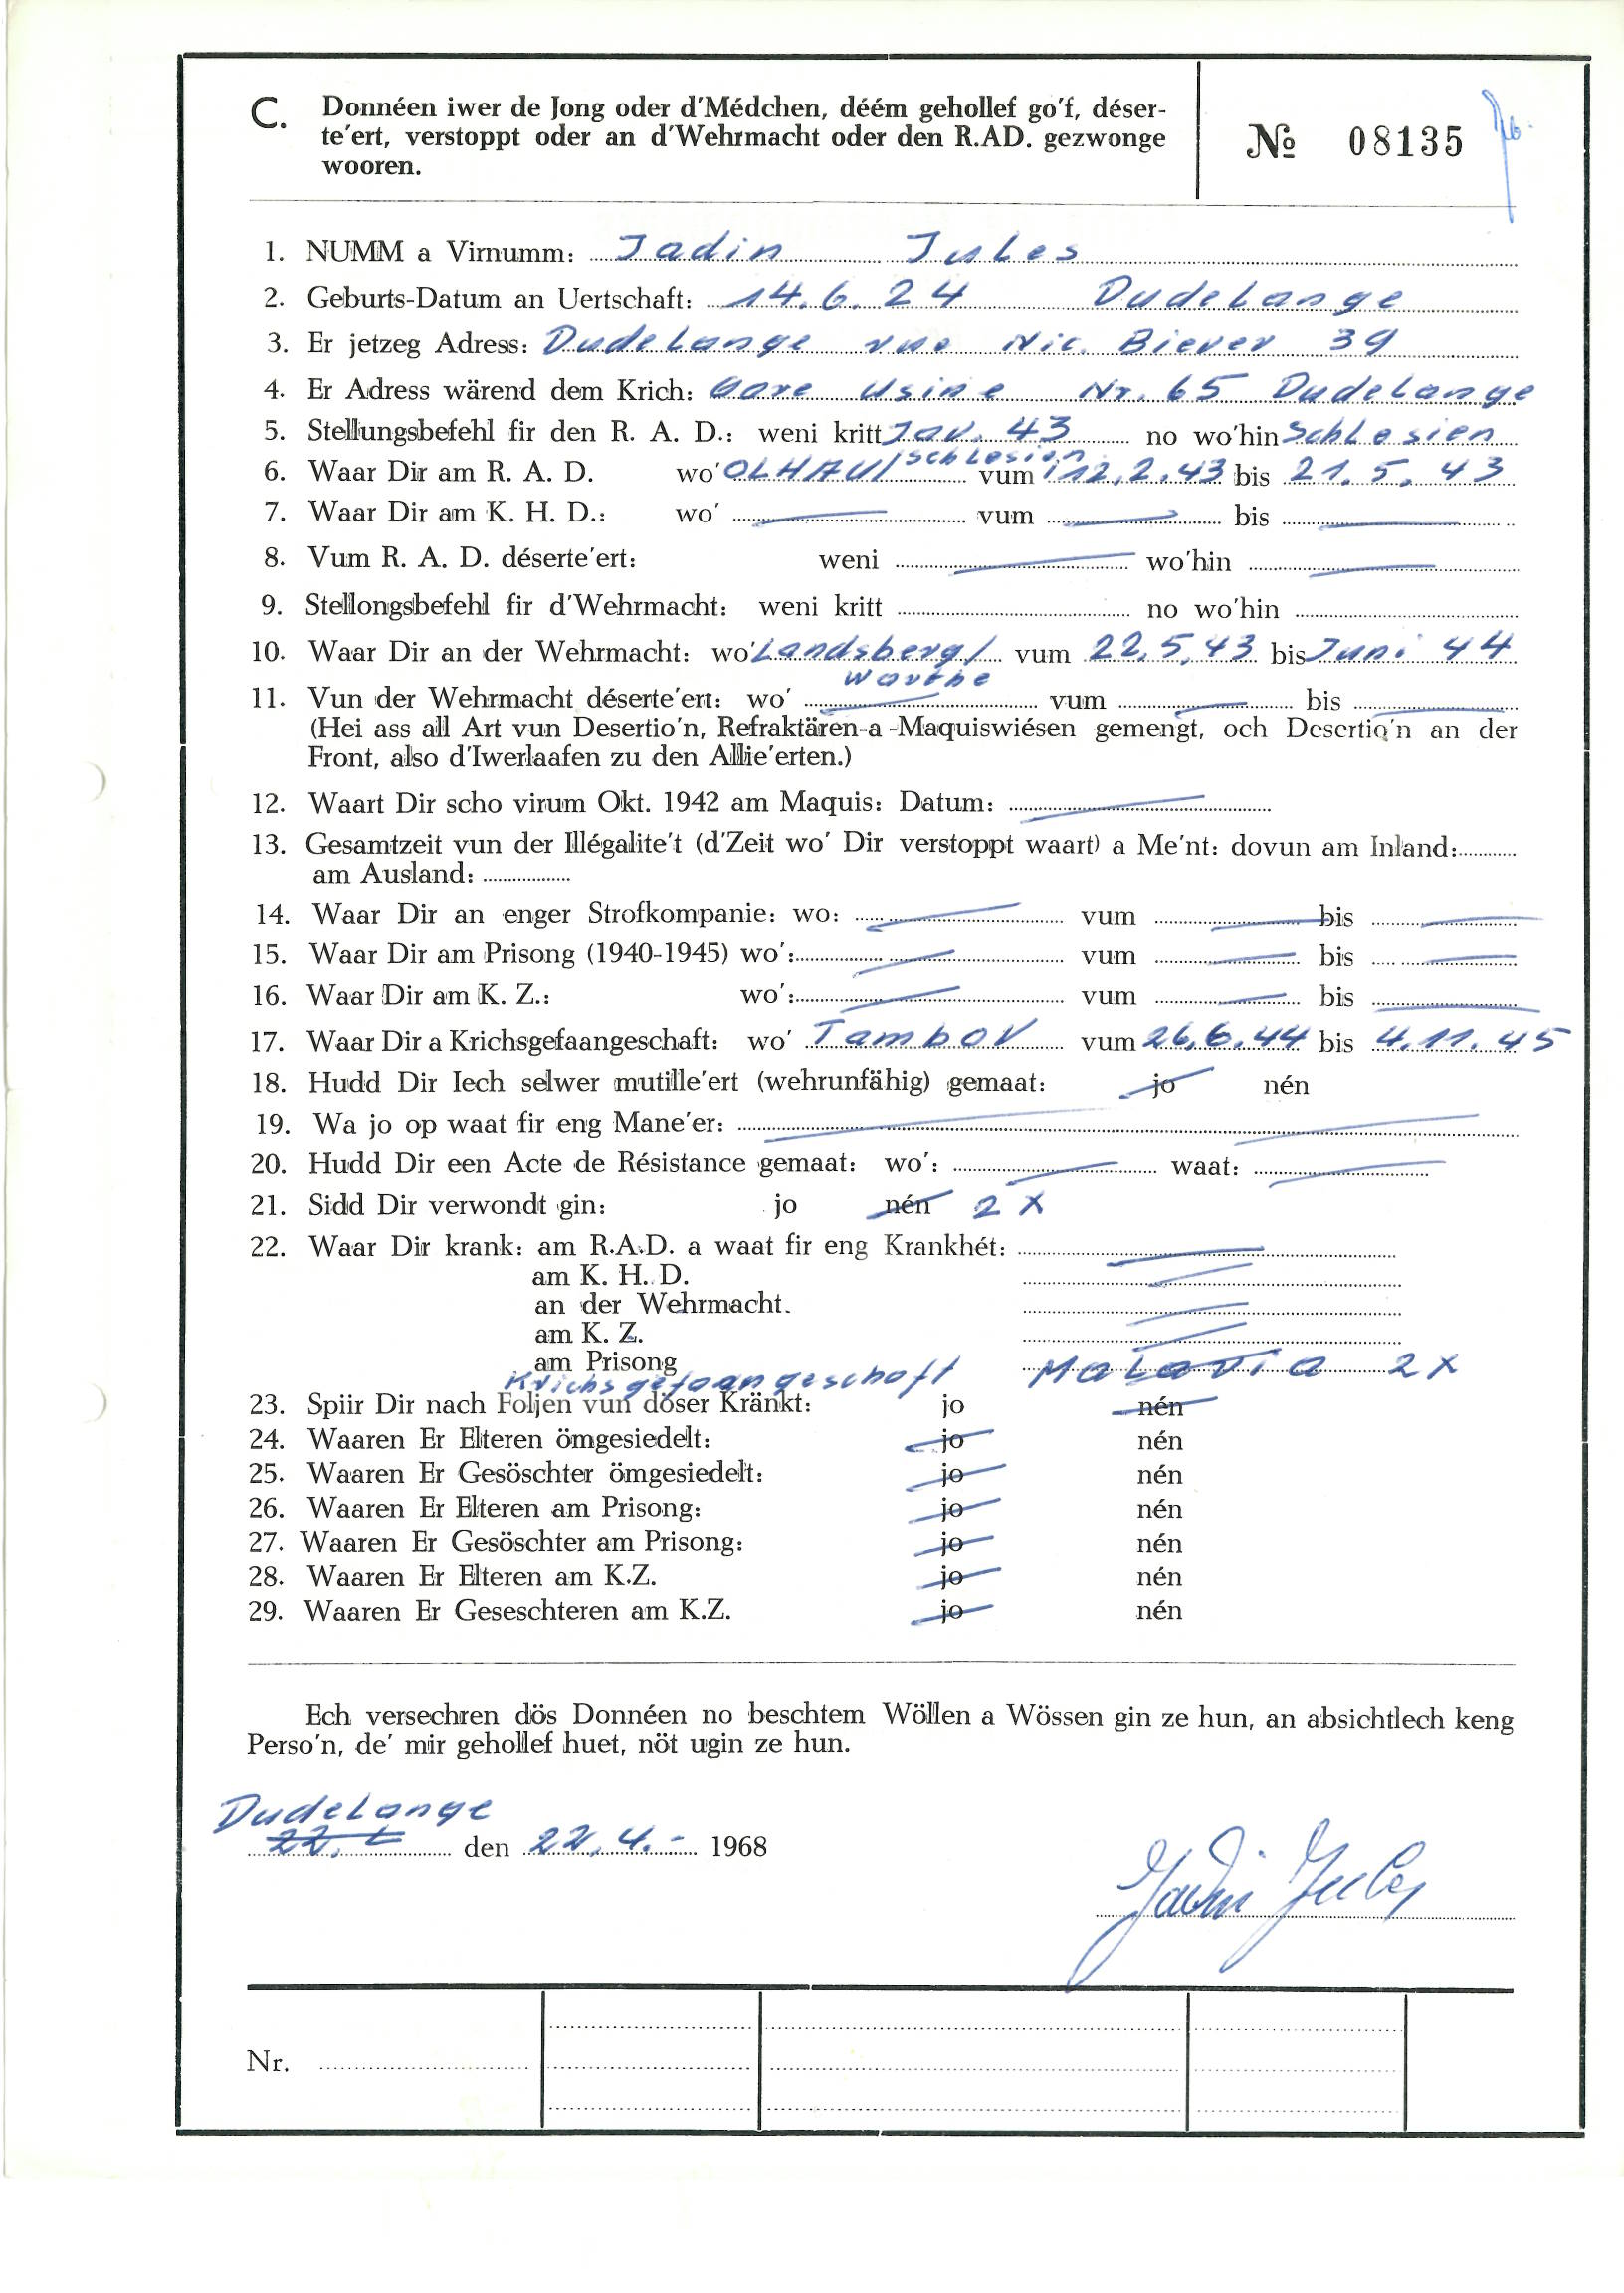 C. Donnéen iwer de Jong oder d'Médchen, déém gehollef go'f, déser-
te'ert, verstoppt oder an d'Wehrmacht oder den R.AD. gezwonge
wooren.
№ 08135
1. NUMM a Virnumm: Jadin Jules
2. Geburts-Datum an Uertschaft: 14.6.24 Dudelange
3. Er jetzeg Adress: Dudelange rue Nic. Biever 39
4. Er Adress wärend dem Krich: Gare Usine Nr. 65 Dudelange
5. Stellungsbefehl fir den R. A. D.: weni kritt Jav. 43 no wo'hin Schlesien
6. Waar Dir am R. A. D. wo' OLHAU/Schlesien vum 12.2.43 bis 21.5.43
7. Waar Dir am K. H. D.: wo' vum bis
8. Vum R. A. D. déserte'ert: weni wo'hin
9. Stellongsbefehl fir d'Wehrmacht: weni kritt no wo'hin
10. Waar Dir an der Wehrmacht: wo' Landsberg/ vum 22.5.43 bis Juni 44
Warthe
11. Vun der Wehrmacht déserte'ert: wo' vum bis
(Hei ass all Art vun Desertio'n, Refraktären-a-Maquiswiésen gemengt, och Desertio'n an der
Front, also d'Iwerlaafen zu den Allie'erten.)
12. Waart Dir scho virum Okt. 1942 am Maquis: Datum:
13. Gesamtzeit vun der Illégalite't (d'Zeit wo' Dir verstoppt waart) a Me'nt: dovun am Inland:
am Ausland:
14. Waar Dir an enger Strofkompanie: wo: vum bis
15. Waar Dir am Prisong (1940-1945) wo': vum bis
16. Waar Dir am K. Z.: wo': vum bis
17. Waar Dir a Krichsgefaangeschaft: wo' Tambov vum 26.6.44 bis 4.11.45
18. Hudd Dir Iech selwer mutille'ert (wehrunfähig) gemaat: jo nén
19. Wa jo op waat fir eng Mane'er:
20. Hudd Dir een Acte de Résistance gemaat: wo': waat:
21. Sidd Dir verwondt gin: jo nén 2 X
22. Waar Dir krank: am R.A.D. a waat fir eng Krankhét:
am K. H. D.
an der Wehrmacht.
am K. Z.
am Prisong
Krichsgefaangeschaft Malaria 2 X
23. Spiir Dir nach Foljen vun döser Kränkt: jo nén
24. Waaren Er Elteren ömgesiedelt: jo nén
25. Waaren Er Gesöschter ömgesiedelt: jo nén
26. Waaren Er Elteren am Prisong: jo nén
27. Waaren Er Gesöschter am Prisong: jo nén
28. Waaren Er Elteren am K.Z. jo nén
29. Waaren Er Geseschteren am K.Z. jo nén
Ech versechren dös Donnéen no beschtem Wöllen a Wössen gin ze hun, an absichtlech keng
Perso'n, de' mir gehollef huet, nöt ugin ze hun.
Dudelange
22. den 22.4.- 1968
Jadin Jules
Nr.